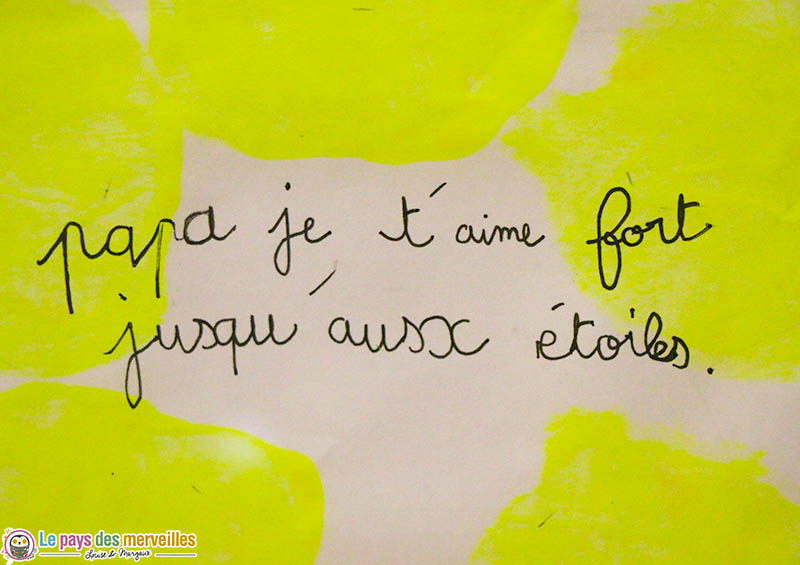 papa je t'aime fort
jusqu'ausx étoiles.
Le pays des merveilles
Louise & Margaux